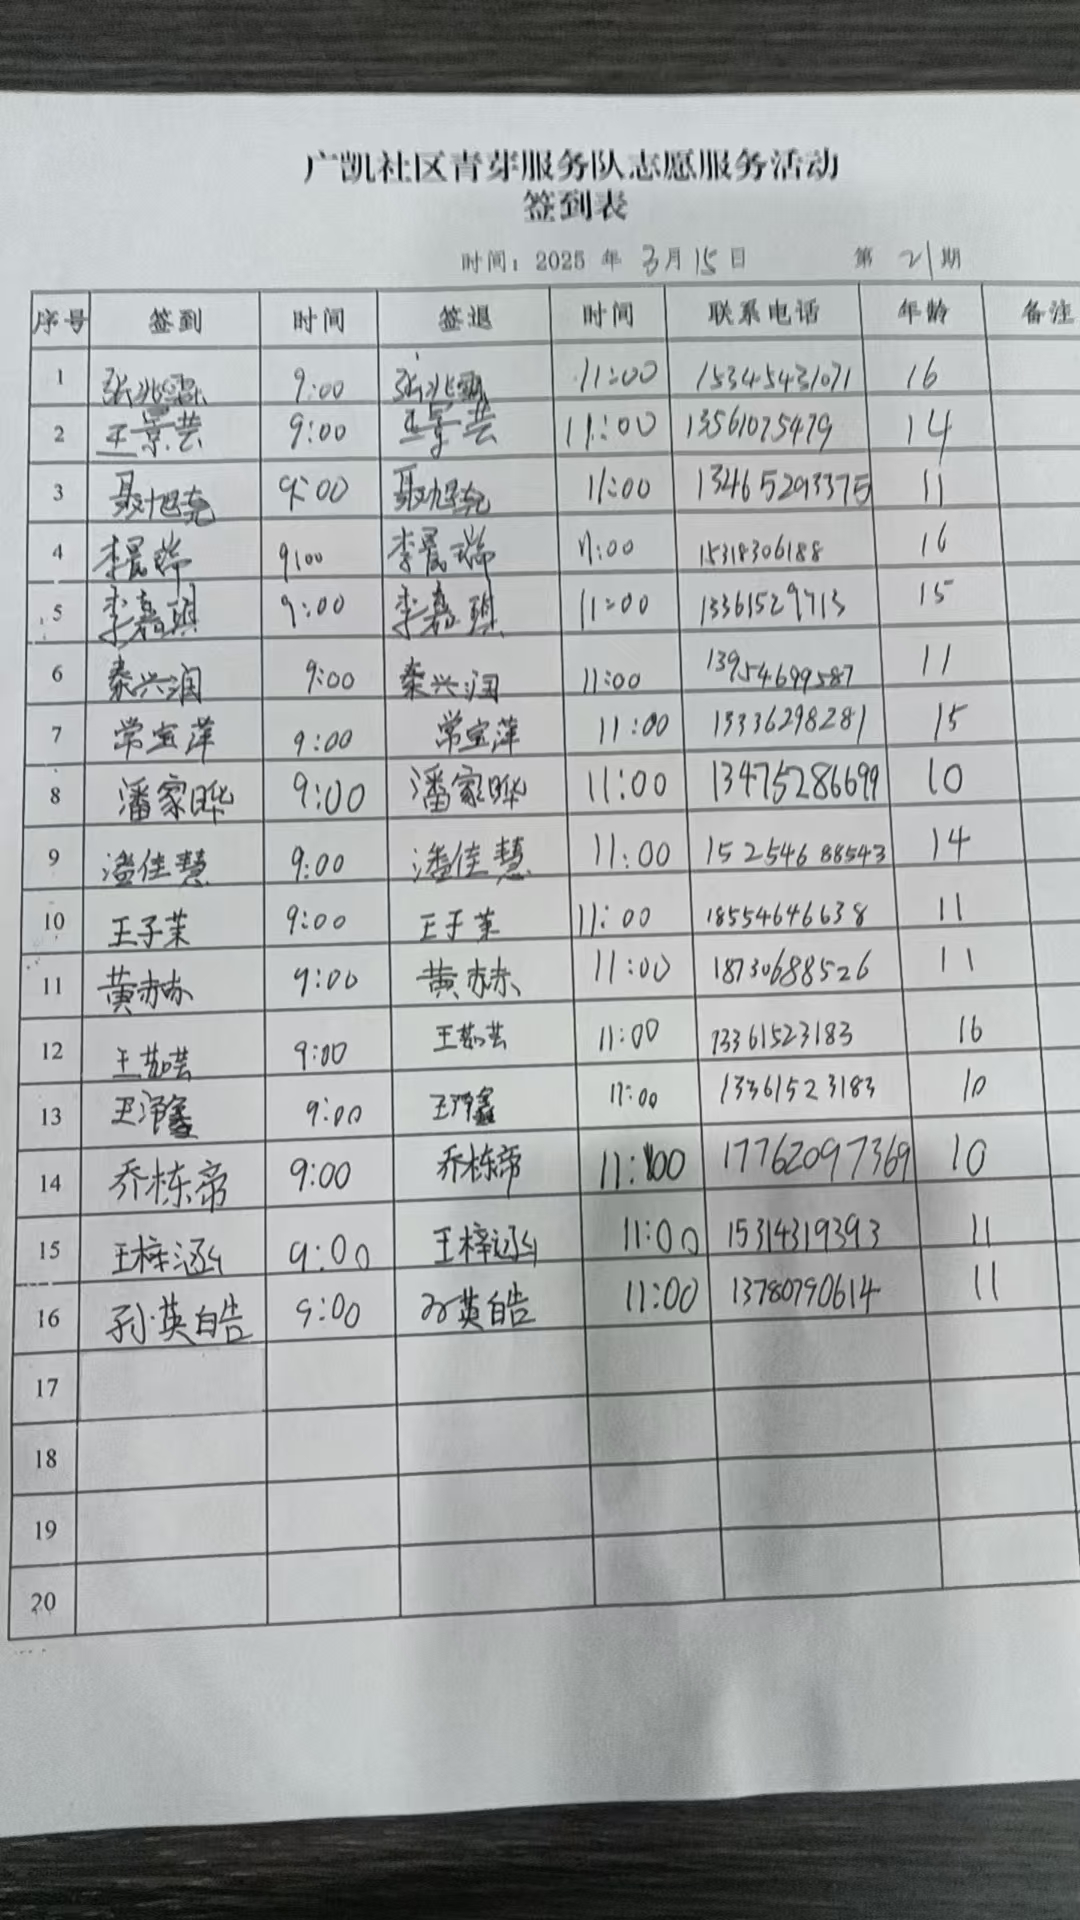 广凯社区青芽服务队志愿服务活动
签到表
时间：2025 年 3月15日 第 21期
序号 签到 时间 签退 时间 联系电话 年龄 备注
1 张兆霖 9:00 张兆霖 11:00 15345431071 16
2 王景芸 9:00 王景芸 11:00 13561075479 14
3 聂旭尧 9:00 聂旭尧 11:00 13465293375 11
4 李晨瑞 9:00 李晨瑞 11:00 15318306188 16
5 李嘉琪 9:00 李嘉琪 11:00 13361529713 15
6 秦兴润 9:00 秦兴润 11:00 13954699587 11
7 常宝萍 9:00 常宝萍 11:00 13336298281 15
8 潘家晔 9:00 潘家晔 11:00 13475286699 10
9 潘佳慧 9:00 潘佳慧 11:00 152546 88543 14
10 王子茉 9:00 王子茉 11:00 18554646638 11
11 黄赫 9:00 黄赫 11:00 18730688526 11
12 王茹芸 9:00 王茹芸 11:00 13361523183 16
13 王淨鑫 9:00 王淨鑫 11:00 13361523183 10
14 乔栋帝 9:00 乔栋帝 11:00 17762097369 10
15 王梓涵 9:00 王梓涵 11:00 15314319393 11
16 孙英皓 9:00 孙英皓 11:00 13780790614 11
17
18
19
20